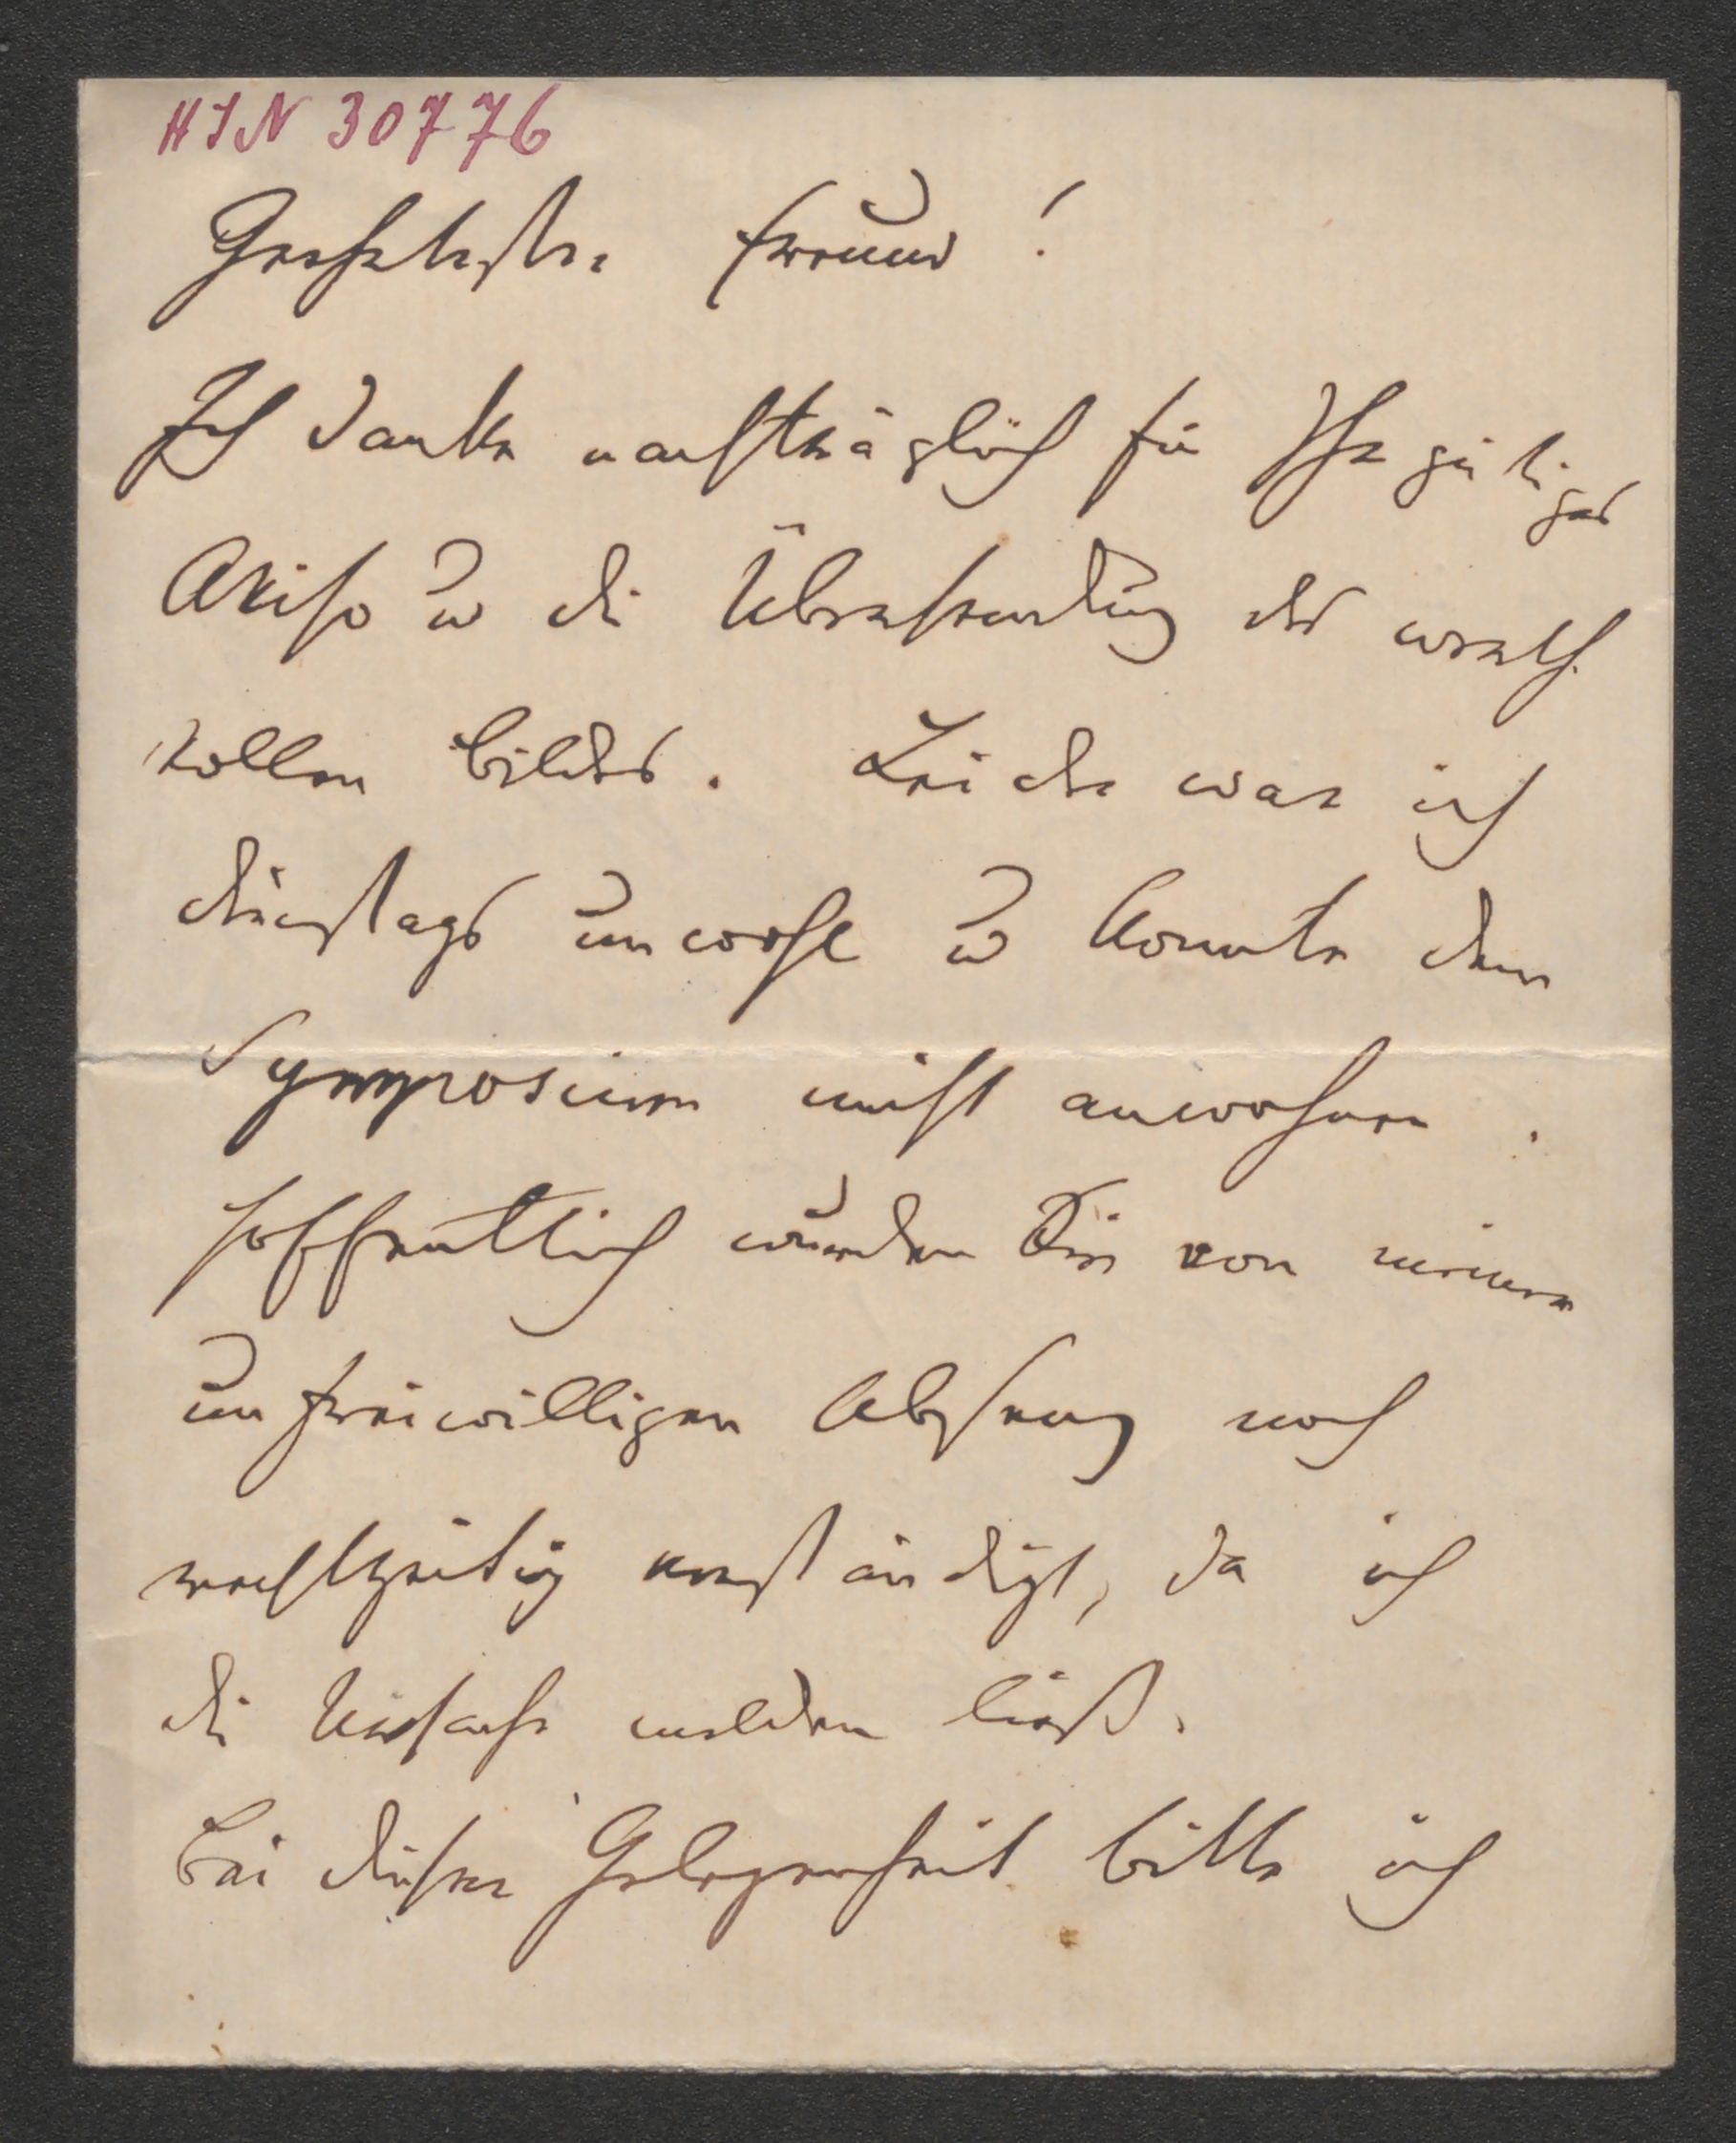 HIN 30776
Geehrtester Freund!
Ich danke nachträglich für Ihr gütiges
Aviso u die Übersendung des werth-
vollen Bildes. Leider war ich
dienstags unwohl u konnte dem
Symposium nicht anwohnen.
Hoffentlich wurden Sie von meinem
unfreiwilligen Absenz noch
rechtzeitig verständigt, da ich
die Ursache melden ließ.
Bei dieser Gelegenheit bitte ich